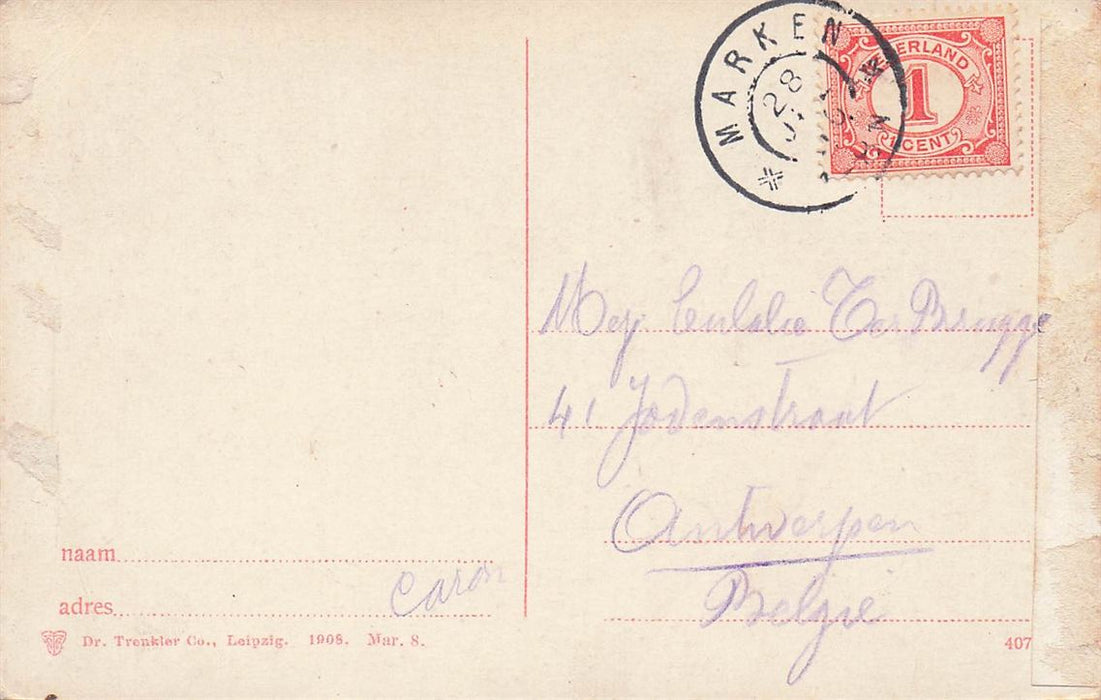 MARKEN
28
NEDERLAND
1
1 CENT
Mej. Eulalie Ter Brugge
41 Jodenstraat
Antwerpen
België
naam
adres
Caron
Dr. Trenkler Co., Leipzig. 1908. Mar. 8.
407